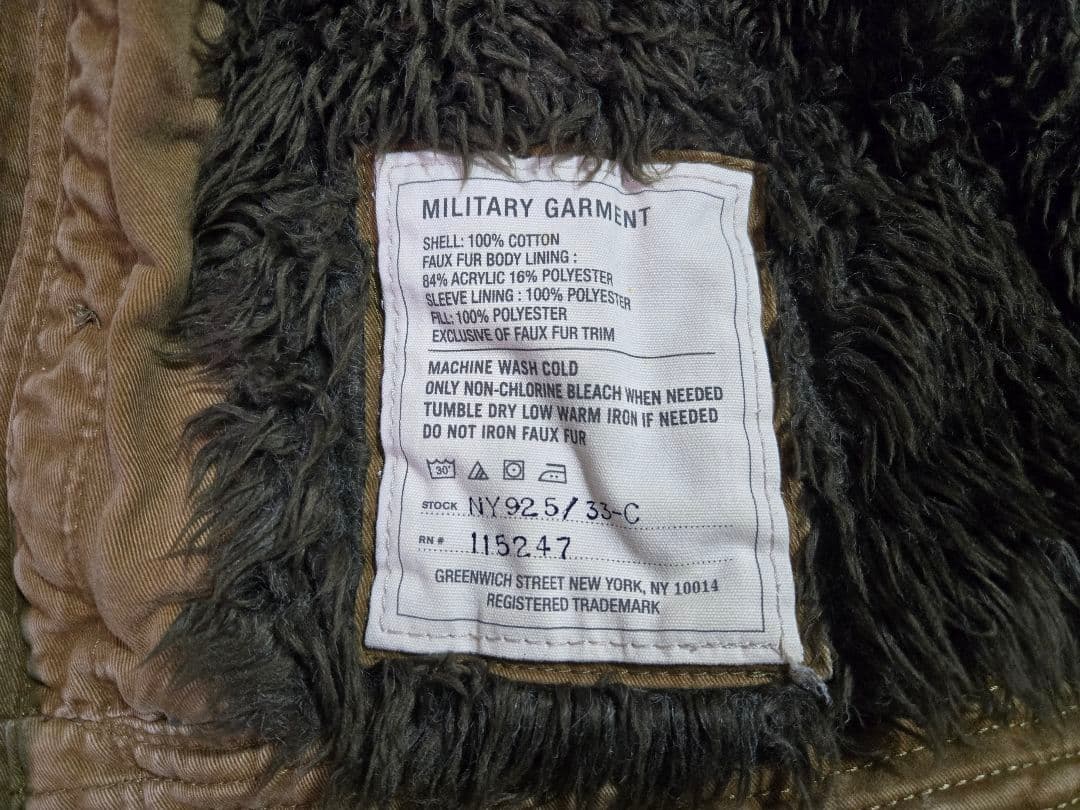 MILITARY GARMENT
SHELL: 100% COTTON
FAUX FUR BODY LINING :
84% ACRYLIC 16% POLYESTER
SLEEVE LINING : 100% POLYESTER
FILL: 100% POLYESTER
EXCLUSIVE OF FAUX FUR TRIM
MACHINE WASH COLD
ONLY NON-CHLORINE BLEACH WHEN NEEDED
TUMBLE DRY LOW WARM IRON IF NEEDED
DO NOT IRON FAUX FUR
30°
STOCK NY925/33-C
RN # 115247
GREENWICH STREET NEW YORK, NY 10014
REGISTERED TRADEMARK